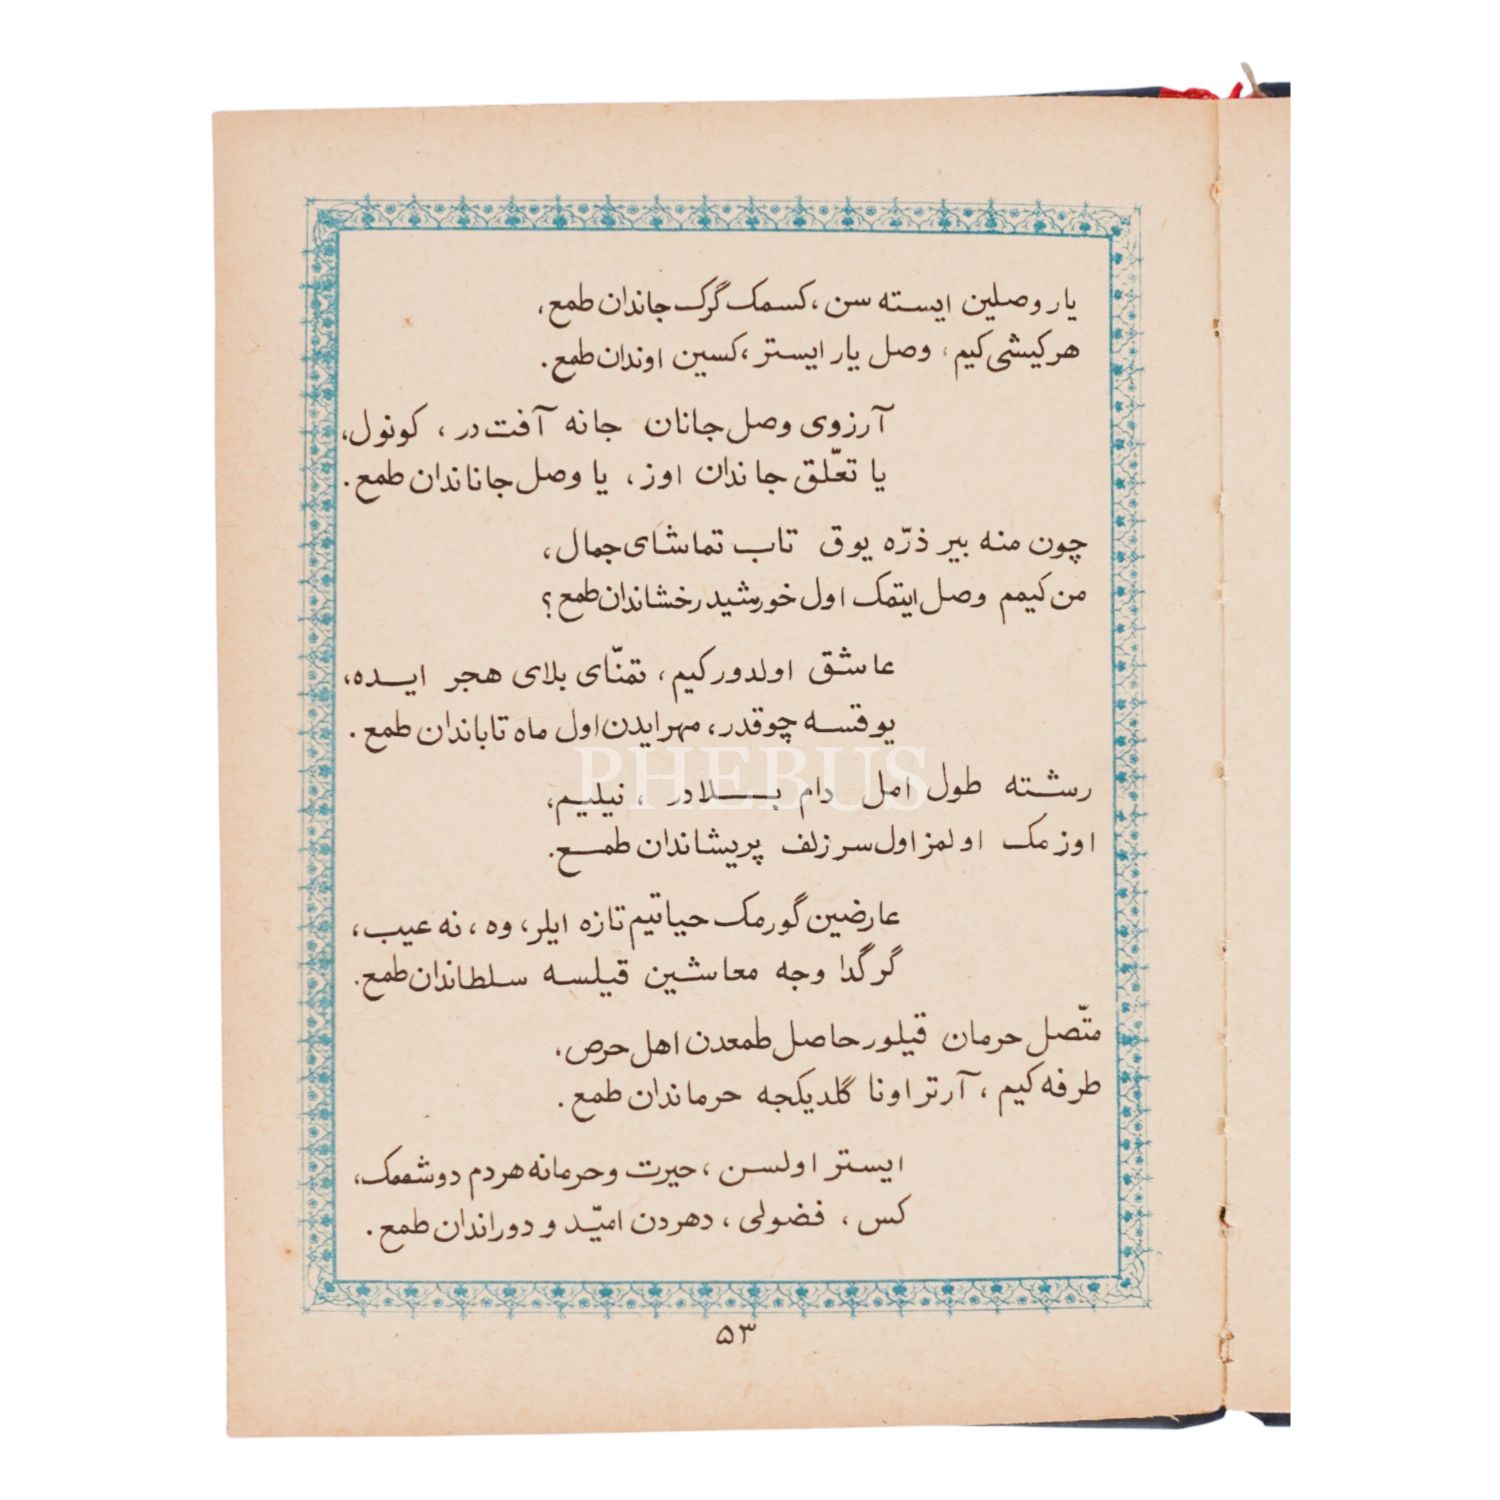 یار وصلین ایسته سن، کسمک گرک جاندان طمع،
هر کیشی کیم، وصل یار ایستر، کسین اوندان طمع.
آرزوی وصل جانان جانه آفت در، کونول،
یا تعلّق جاندان اوز، یا وصل جاناندان طمع.
چون منه بیر ذرّه یوق تاب تماشای جمال،
من کیمم وصل ایتمک اول خورشید رخشاندان طمع؟
عاشق اولدور کیم، تمنّای بلای هجر ایده،
یوقسه چوقدر، مهر ایدن اول ماه تاباندان طمع.
رشته طول امل دام بلادر، نیلیم،
اوزمک اولمز اول سر زلف پریشاندان طمع.
عارضین گورمک حیاتیم تازه ایلر، وه، نه عیب،
گر گدا وجه معاشین قیلسه سلطاندان طمع.
متّصل حرمان قیلور حاصل طمعدن اهل حرص،
طرفه کیم، آرتر اونا گلدیکجه حرماندان طمع.
ایستر اولسن، حیرت و حرمانه هردم دوشممک،
کس، فضولی، دهردن امیّد و دوراندان طمع.
۵۳
PHEBUS